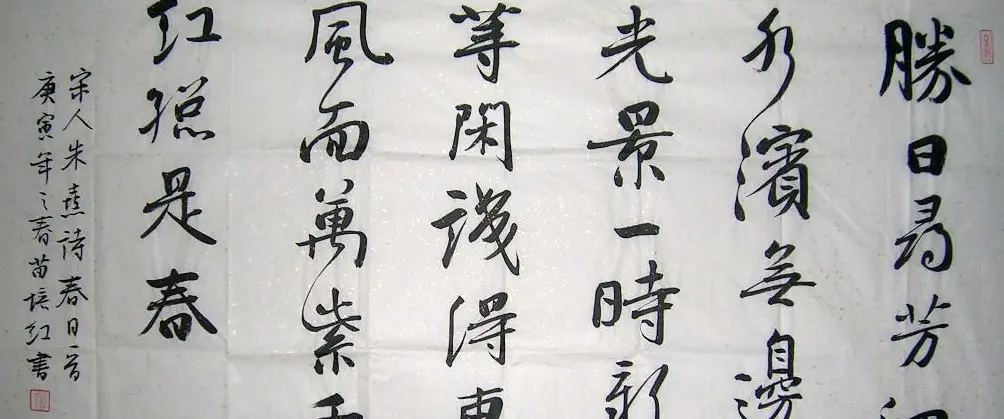 勝日尋芳
水濱無邊
光景一時新
等閑識得東
風面萬紫千
红總是春
宋人朱熹詩春日一首
庚寅年之春苗培红書